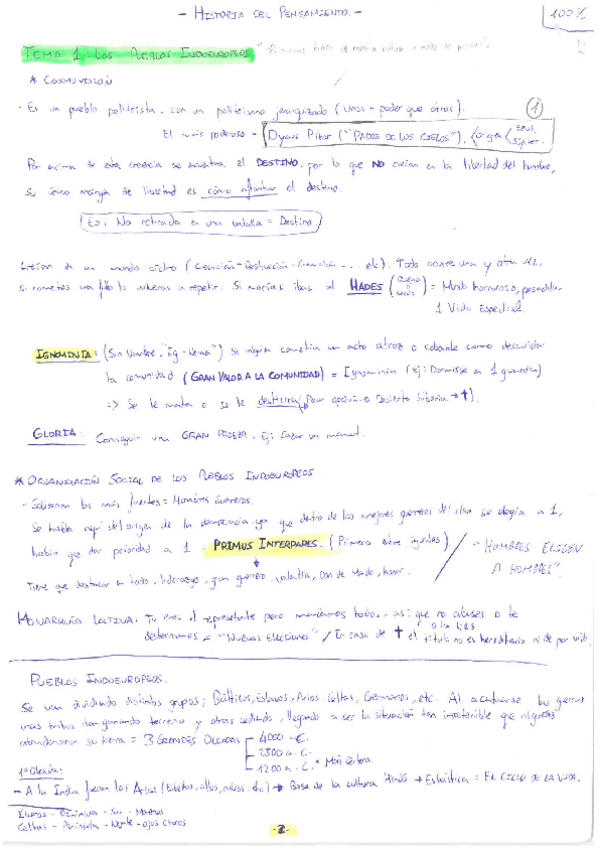 - HISTORIA DEL PENSAMIENTO. -
100%
TEMA 1: LOS PUEBLOS INDOEUROPEOS "Primeros de nuestra cultura o modo de pensar".
* COSMOVISIÓN
- Es un pueblo politeísta, con un politeísmo jerarquizado (Unos + poder que otros). 1
El más poderoso - Dyaus Pitar ("PADRE DE LOS CIELOS"). Origen Zeus, Júpiter.
Por encima de esta creencia se encuentra el DESTINO, por lo que NO creían en la libertad del hombre,
Su único margen de libertad es cómo afrontar el destino.
Ej: No retirada en una batalla = Destino.
Creían en un mundo cíclico (Creación-Destrucción-Creación ... etc). Todo ocurre una y otra vez,
si cometías un fallo lo volverías a repetir. Si morías ibas al HADES = Mundo horroroso, pesadilla.
1 Vida Espectral.
IGNOMINIA: (Sin Nombre. "Ig-Nomia") si alguien cometía un acto atroz o cobarde como descuidar
la comunidad (GRAN VALOR A LA COMUNIDAD) = Ignominia (ej: Dormirse en 1 guardia)
=> Se le mata o se le destierra, Desierto Siberia → †).
GLORIA: Conseguir una GRAN PROEZA. Ej: Cazar un mamut.
* ORGANIZACIÓN SOCIAL DE LOS PUEBLOS INDOEUROPEOS
- Sobresalían los más fuertes = Hombres Guerreros.
Se habla aquí del origen de la democracia ya que dentro de los mejores guerreros del clan se elegía a 1,
habían que dar prioridad a 1 = PRIMUS INTERPARES. (Primero entre iguales) / - "HOMBRES ELIGEN
A HOMBRES".
Tiene que destacar en todo, liderazgo, gran guerrero, valentía, Don de Mando, honor.
MONARQUÍA ELECTIVA: Tu eres el representante pero mandamos todos, así que no abuses o te
desterramos = "Nuevas Elecciones" / En caso de † el título no es hereditario ni de por vida.
PUEBLOS INDOEUROPEOS.
Se van dividiendo distintos grupos; Bálticos, Eslavos, Arios, Celtas, Germanos, etc. Al las guerras
unas tribus iban ganando terreno y otras cediendo, llegando a ser la situación tan insostenible que algunos
abandonaron su tierra = 3 GRANDES OLEADAS - 4000 a.C.
- 2500 a. C.
- 1200 a. C.
1ª Oleada:
- A la India fueron los Arios (Esbeltos, altos, rubios, etc) → Base de la cultura Hindú → = EL CICLO DE LA VIDA.
Iberos - Península - Sur - Morenos
Celtas - Península - Norte - ojos claros
-2-